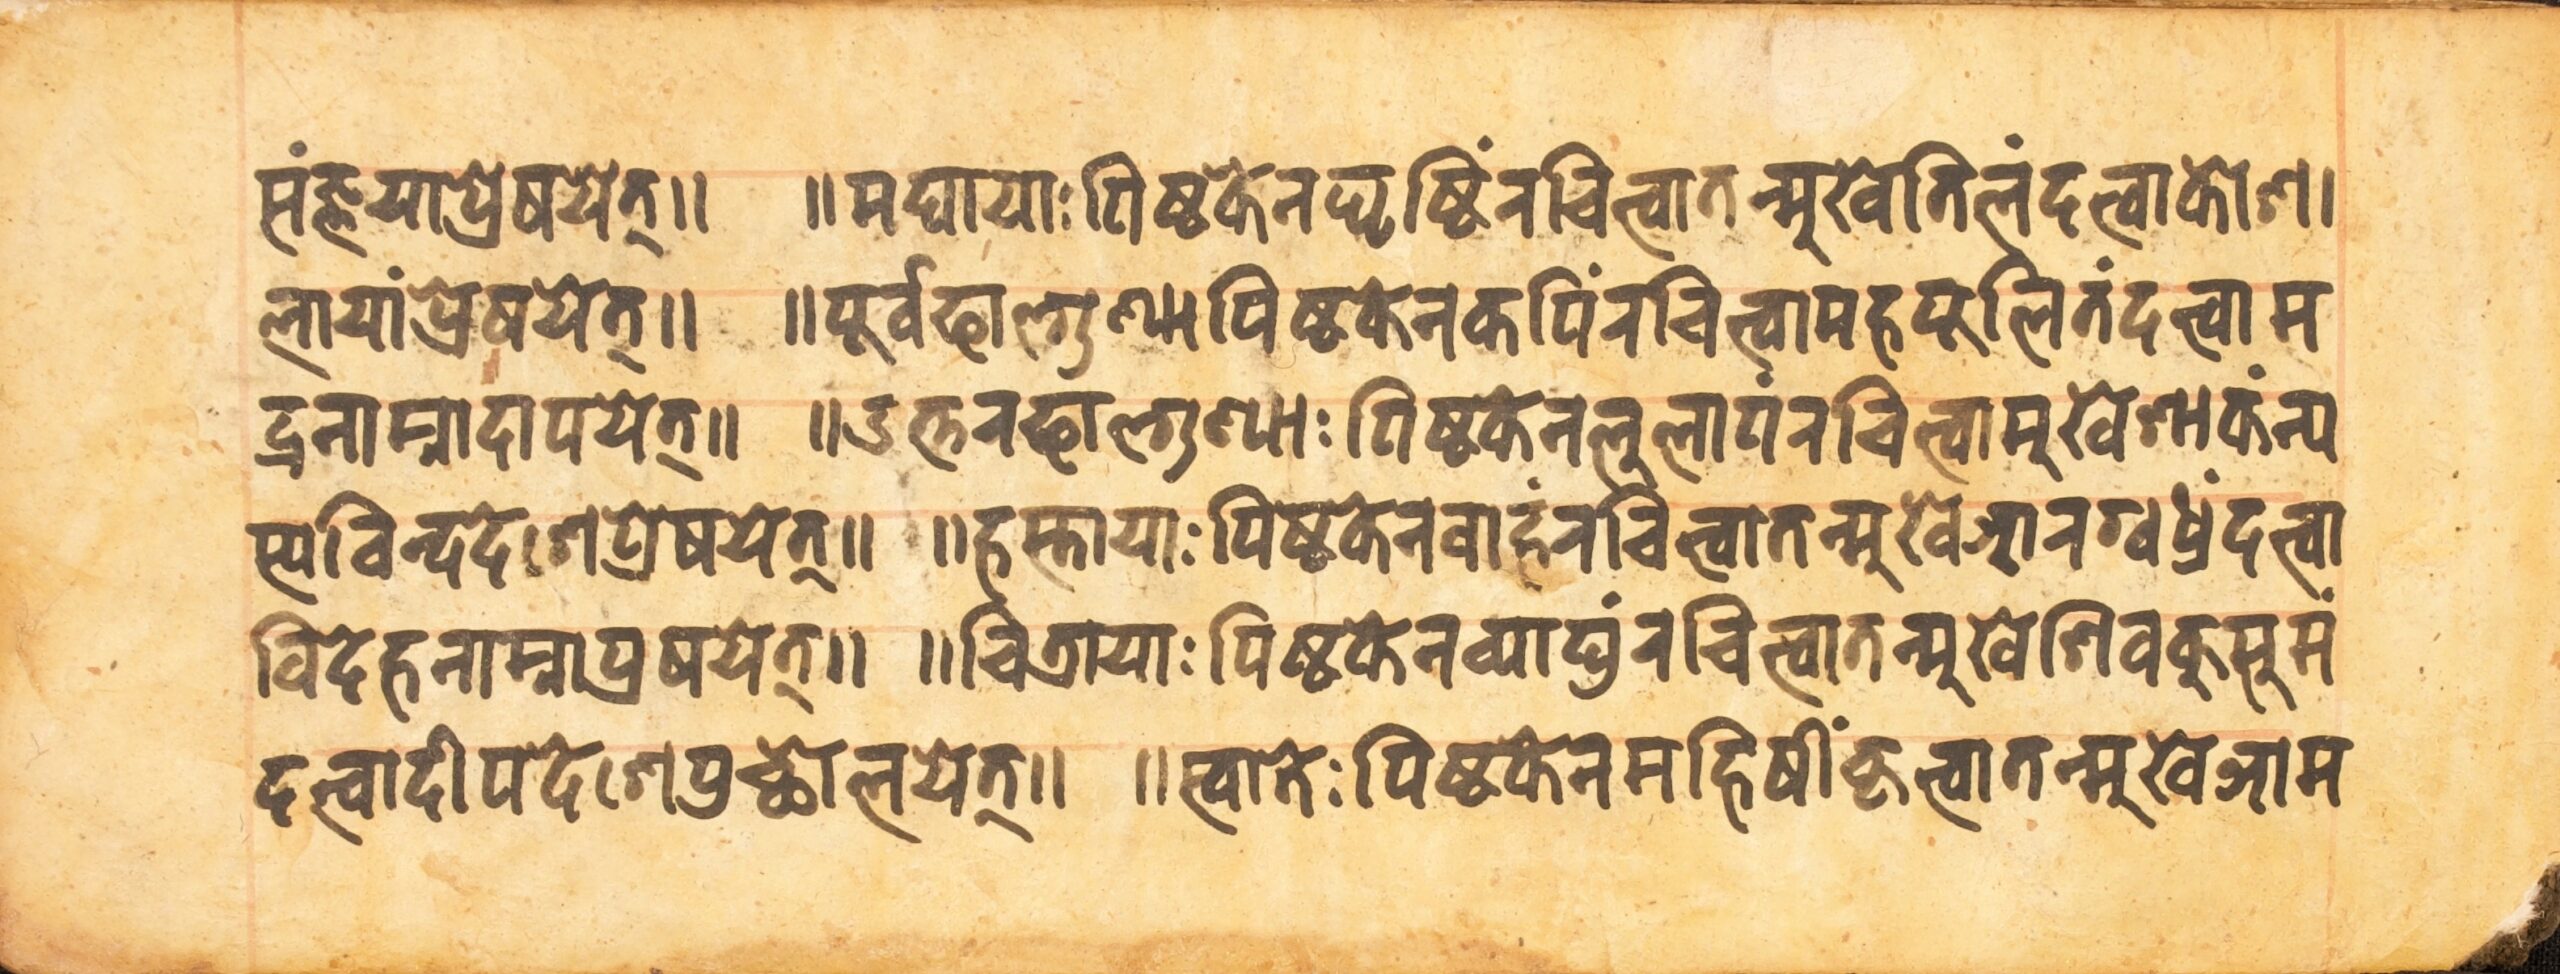 संज्ञयाप्रेषयेत्॥ ॥मघायाः पिष्टकेनघृष्टिंरचित्वातन्मूखेतिलंदत्वाकोश।
लायांप्रेषयेत्॥ ॥पूर्वफाल्गुण्याःपिष्टकेनकपिंरचित्वामहपूलितंदत्वाम
द्रनाम्नादापयेत्॥ ॥उत्तरफाल्गुण्याःपिष्टकेनलूलापंरचित्वामूखेशाकंन्य
स्यविन्ददेशेप्रेषयेत्॥ ॥हस्तायाःपिष्टकेनवाहंरचित्वातन्मूखेआरग्वध्रंदत्वा
विदेहनाम्नाप्रषयेत्॥ ॥चित्रायाःपिष्टकेनव्याघ्रंरचित्वातन्मूखेशिवकूसूमं
दत्वादीपदेशेप्रच्छोलयेत्॥ ॥स्वातेःपिष्टकेनमहिषींकृत्वातन्मूखेआम